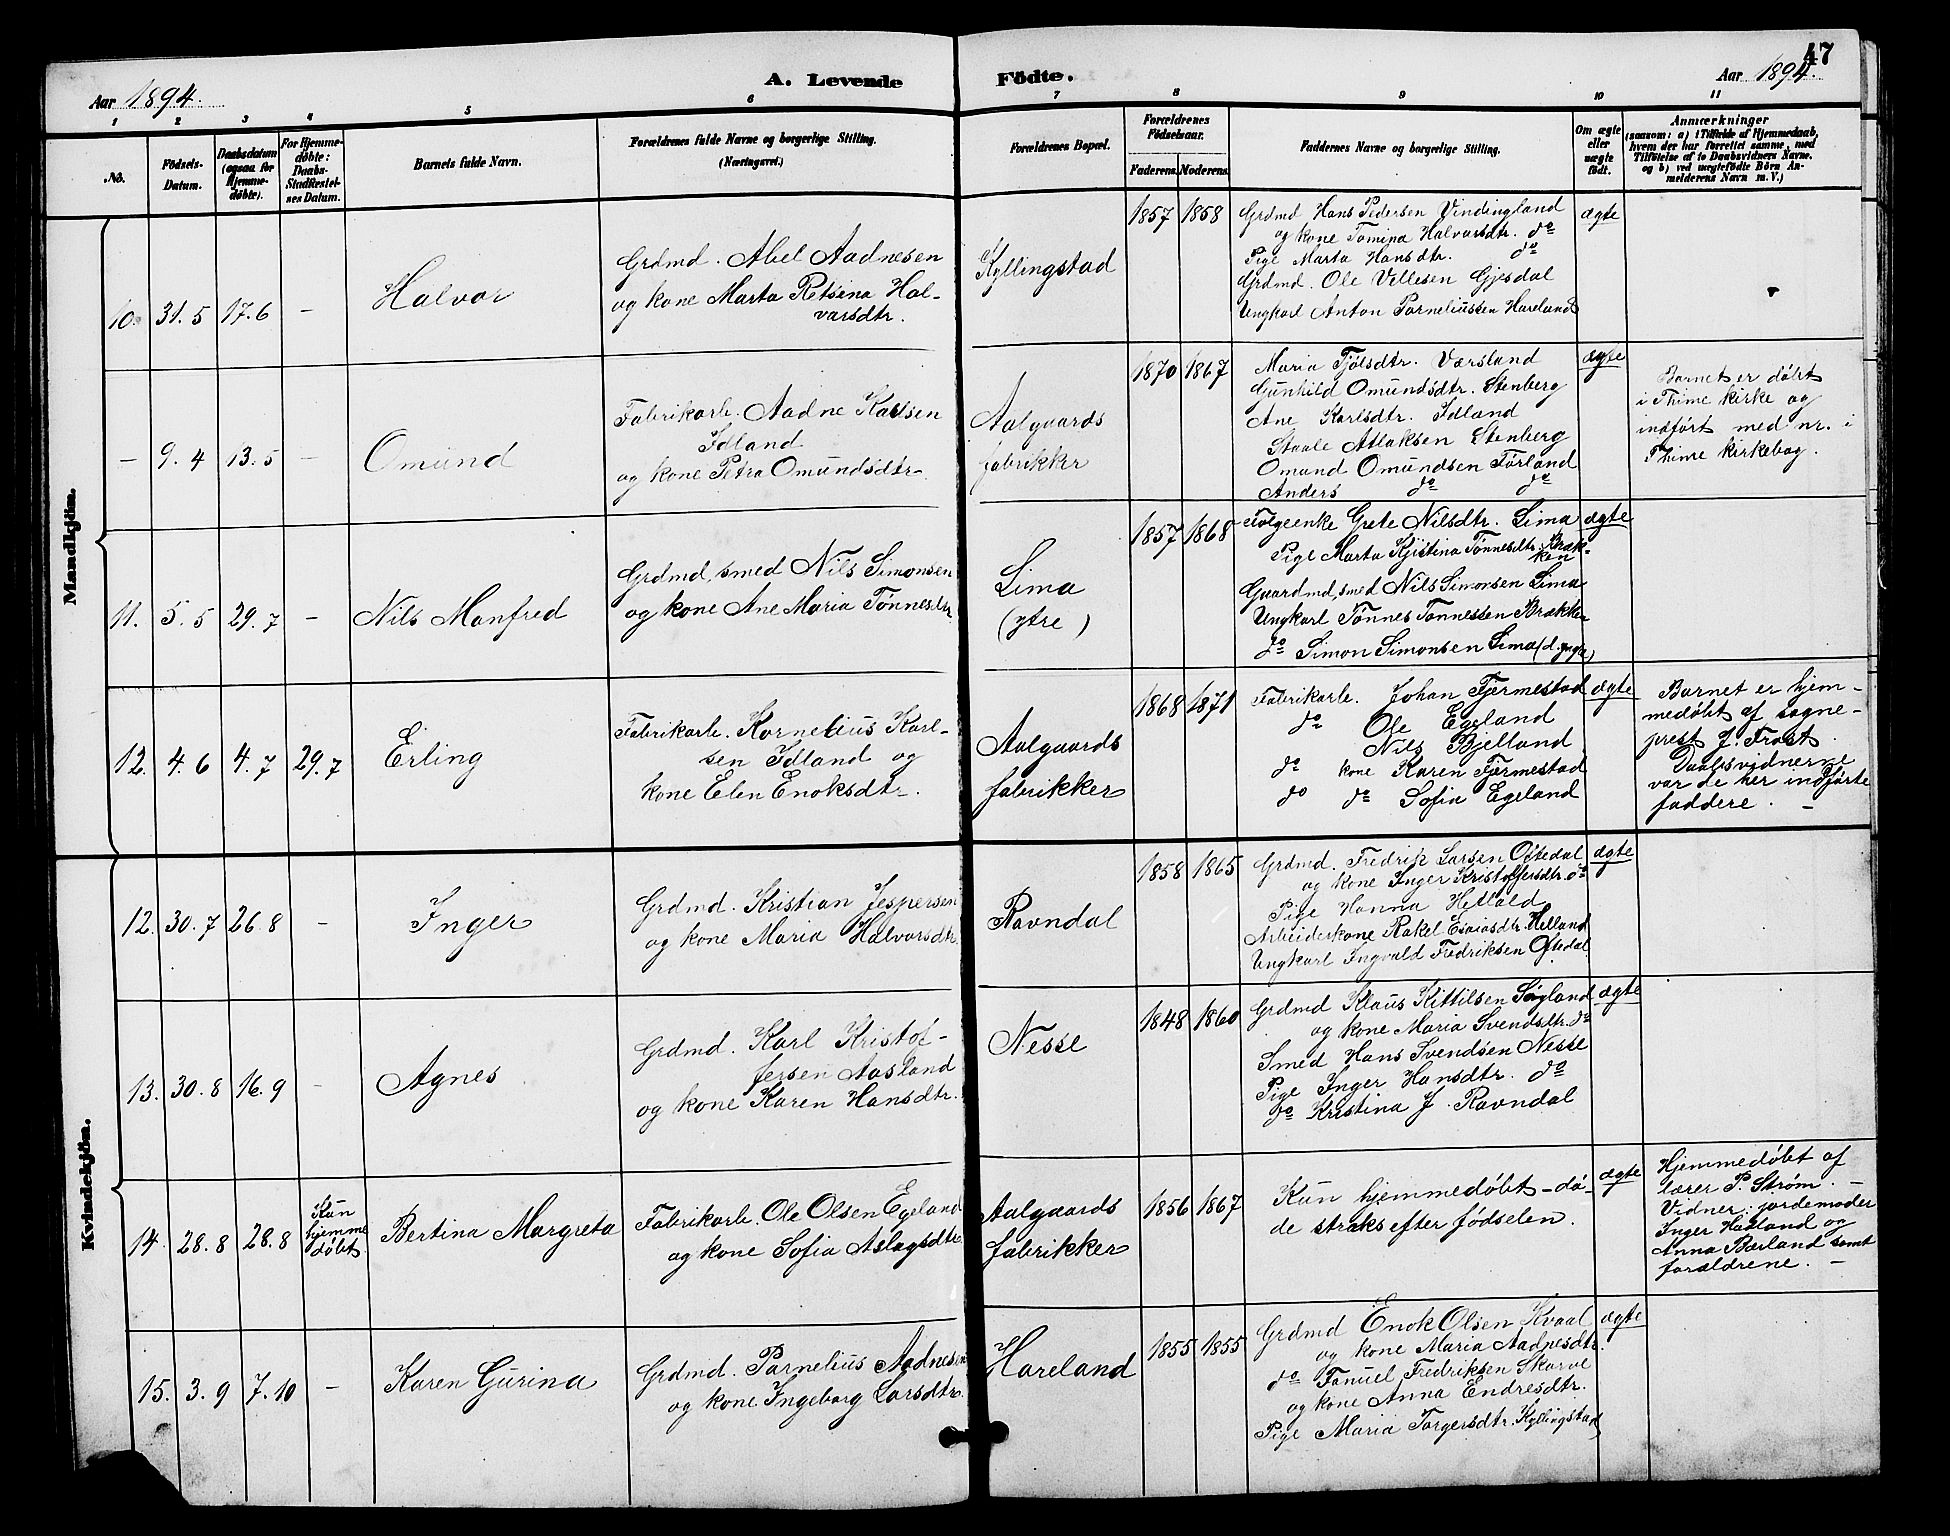 47
Aar 1894.
A. Levende Födte.
Aar 1894.
1 2 3 4 5 6 7 8 9 10 11
No.
Födsels-
Datum.
Daabsdatum
(ogsaa for
Hjemme-
døbte).
For Hjemme-
døbte:
Daabs-
Stadfæstel-
ses Datum.
Barnets fulde Navn.
Forældrenes fulde Navne og borgerlige Stilling.
(Næringsvei.)
Forældrenes Bopæl.
Forældrenes
Födselsaar.
Faderens. Moderens.
Faddernes Navne og borgerlige Stilling.
Om ægte
eller
uægte
født.
Anmærkninger
(saasom: a) i Tilfælde af Hjemmedaab,
hvem der har forrettet samme, med
Tilföielse af to Daabsvidners Navne,
og b) ved uægtefödte Börn An-
melderens Navn m. V.)
Mandkjön.
10. 31.5 17.6 –
Halvor
Grdmd. Abel Aadnesen
og kone Marta Retsena Hal-
varsdtr.
Kyllingstad
1857 1858
Grdmd Hans Pedersen Vindingland
og kone Tomina Halvarsdtr. do
Pige Marta Hansdtr. do
Grdmd. Ole Villesen Gjesdal
Ungkarl Anton Parneliussen Hareland
ægte
– 9.4 13.5 –
Omund
Fabrikarb. Aadne Karlsen
Idland
og kone Petra Omundsdtr.
Aalgaards
fabrikker
1870 1867
Maria Tjølsdtr. Værsland
Gunhild Omundsdtr. Stenberg
Ane Karlsdtr. Idland
Staale Atlaksen Stenberg
Omund Omundsen Førland
Anders do do
ægte
Barnet er døbt
i Thime kirke og
indført med nr. i
Thime kirkebog.
11. 5.5 29.7 –
Nils Manfred
Grdmd, smed Nils Simonsen
og kone Ane Maria Tønnesdtr
Lima
(ytre)
1857 1868
Folgeenke Grete Nilsdtr. Lima
Pige Marta Kjistina Tønnesdtr. Bræk-
ken
Gaardmd, smed Nils Simonsen Lima
Ungkarl Tønnes Tønnessen Brækken
do Simon Simonsen Lima (d. yngre)
ægte
12. 4.6 4.7 29.7
Erling
Fabrikarb. Kornelius Karl-
sen Idland og
kone Elen Enoksdtr.
Aalgaards
fabrikker
1868 1871
Fabrikarb. Johan Fjermestad
do Ole Egeland
Nils Bjelland
do kone Karen Fjermestad
do do Sofia Egeland
ægte
Barnet er hjem-
medøbt af sogne-
prest J. Frost.
Daabsvidnerne
var de her indførte
faddere. –
Kvindekjön.
12. 30.7 26.8 –
Inger
Grdmd. Kristian Jespersen
og kone Maria Halvorsdtr.
Ravndal
1858 1865
Grdmd. Fredrik Larsen Oftedal
og kone Inger Kristoffersdtr. do
Pige Hanna Hetland
Arbeiderkone Rakel Esaiasdtr. Helland
Ungkarl Ingvald Fredriksen Oftedal
ægte
13. 30.8 16.9 –
Agnes
Grdmd. Karl Kristof-
fersen Aasland
og kone Karen Hansdtr.
Nesse
1848 1860
Grdmd Klaus Kittilsen Søyland
og kone Maria Svendsdtr. do
Smed Hans Svendsen Nesse
Pige Inger Hansdtr. do
do Kristina J. Ravndal
ægte
14. 28.8 28.8
Kun
hjemme
døbt
Bertina Margreta
Fabrikarb. Ole Olsen Egeland
og kone Sofia Aslagsdtr.
Aalgaards
fabrikker
1856 1867
Kun hjemmedøbt – dø-
de straks efter fødselen.
ægte
Hjemmedøbt af
lærer P. Strøm. –
Vidner: jordemoder
Inger Haaland og
Anna Bærland samt
forældrene. –
15. 3.9 7.10 –
Karen Gurina
Grdmd. Parnelius Aadnesen
og kone Ingeborg Larsdtr.
Hareland
1855 1855
Grdmd Enok Olsen Kvaal
og kone Maria Aadnesdtr.
do Fanuel Fredriksen Skurve
og kone Anna Endresdtr.
Pige Maria Torgersdtr. Kyllingstad
ægte